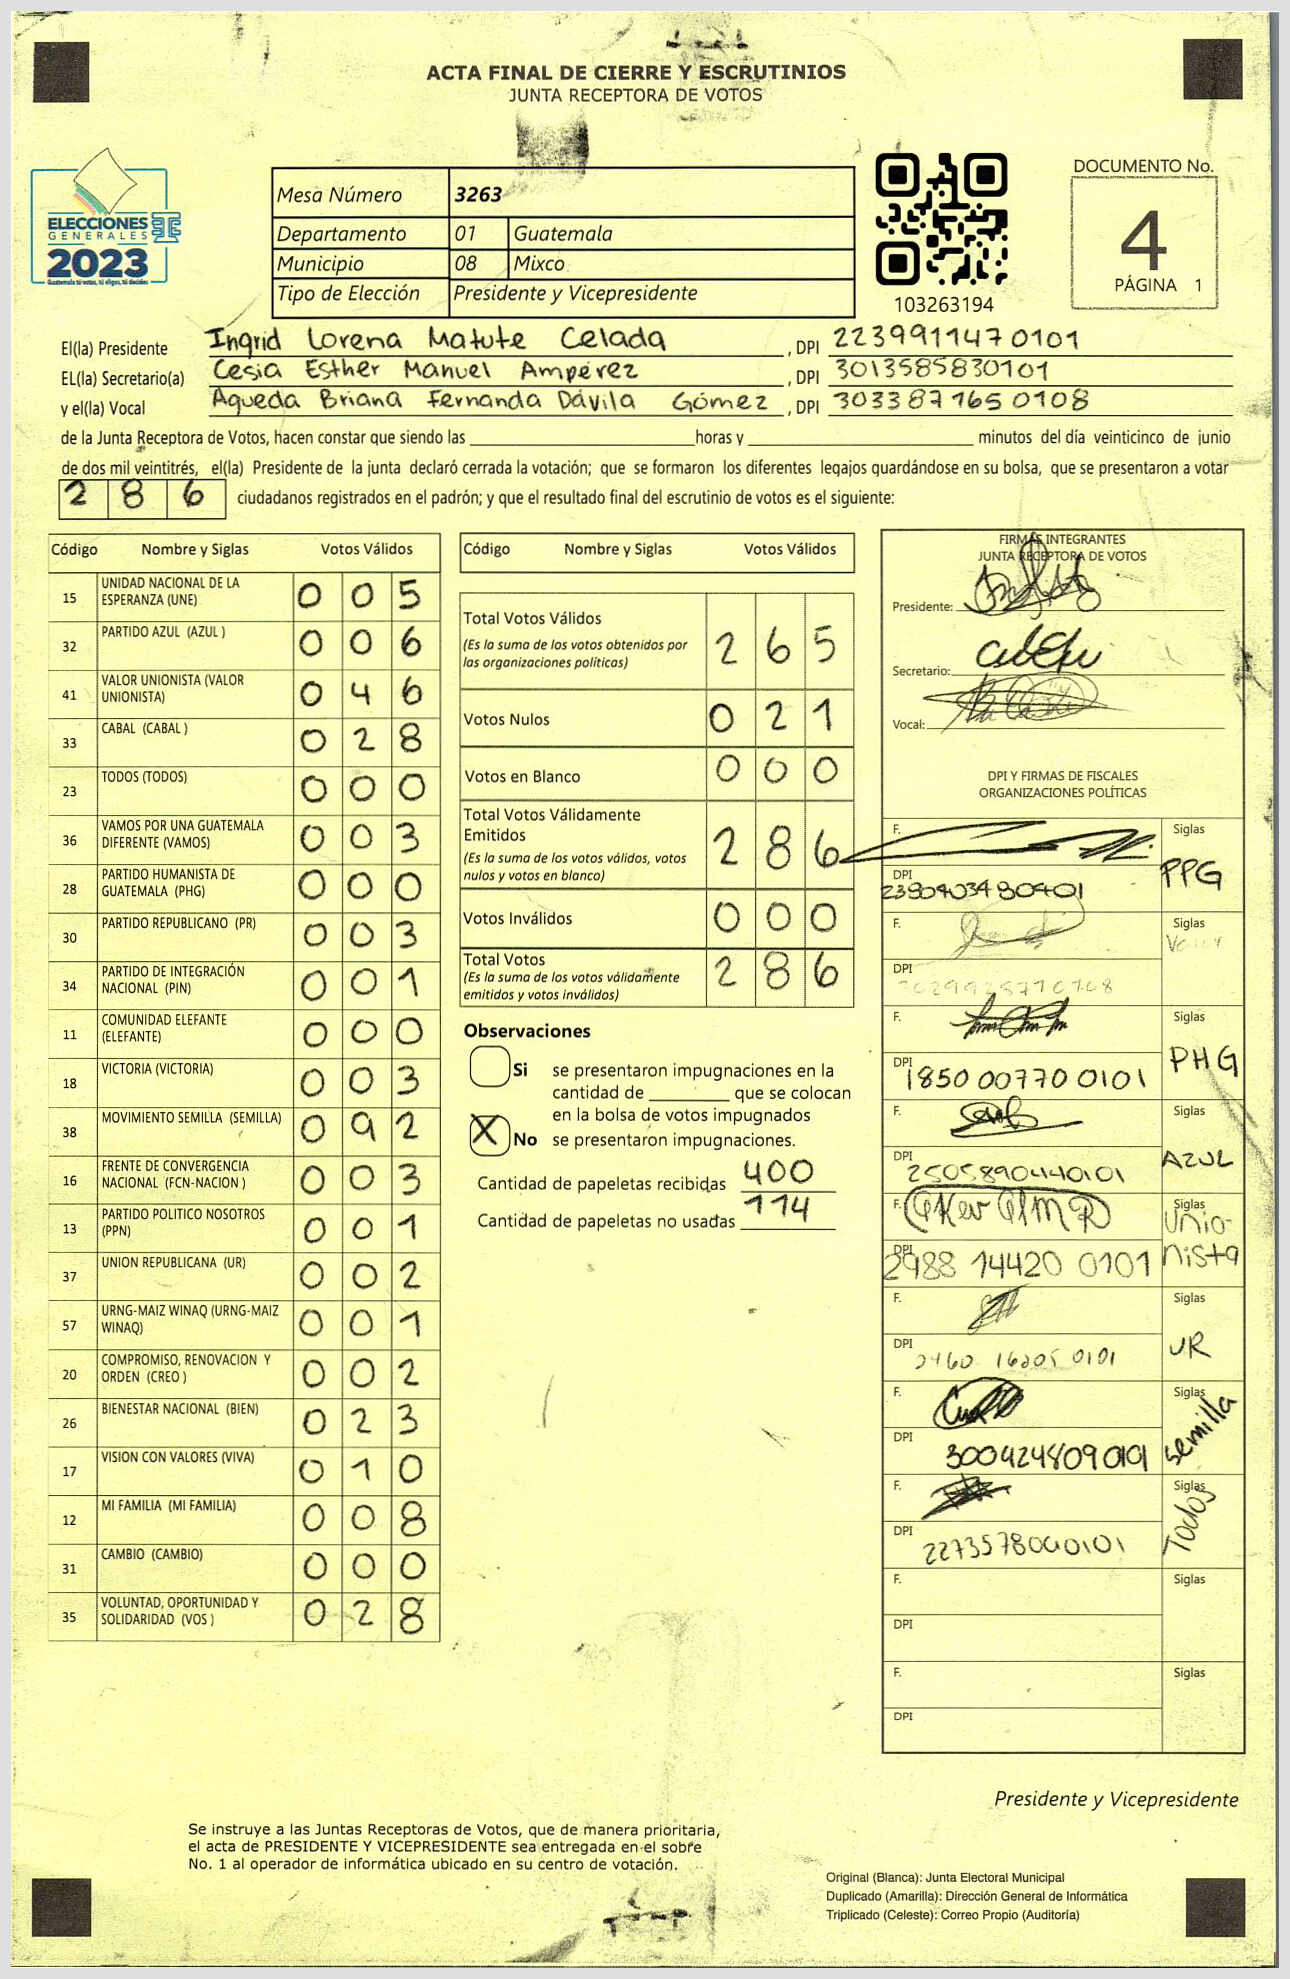 ACTA FINAL DE CIERRE Y ESCRUTINIOS
JUNTA RECEPTORA DE VOTOS
ELECCIONES
GENERALES
2023
Guatemala tú votas, tú eliges, tú decides
Mesa Número 3263
Departamento 01 Guatemala
Municipio 08 Mixco
Tipo de Elección Presidente y Vicepresidente
103263194
DOCUMENTO No.
4
PÁGINA 1
El(la) Presidente Ingrid Lorena Matute Celada , DPI 2239911470101
EL(la) Secretario(a) Cesia Esther Manuel Ampérez , DPI 3013585830101
y el(la) Vocal Aqueda Briana Fernanda Dávila Gómez , DPI 3033871650108
de la Junta Receptora de Votos, hacen constar que siendo las horas y minutos del día veinticinco de junio
de dos mil veintitrés, el(la) Presidente de la junta declaró cerrada la votación; que se formaron los diferentes legajos guardándose en su bolsa, que se presentaron a votar
286 ciudadanos registrados en el padrón; y que el resultado final del escrutinio de votos es el siguiente:
Código Nombre y Siglas Votos Válidos
15 UNIDAD NACIONAL DE LA ESPERANZA (UNE) 0 0 5
32 PARTIDO AZUL (AZUL ) 0 0 6
41 VALOR UNIONISTA (VALOR UNIONISTA) 0 4 6
33 CABAL (CABAL ) 0 2 8
23 TODOS (TODOS) 0 0 0
36 VAMOS POR UNA GUATEMALA DIFERENTE (VAMOS) 0 0 3
28 PARTIDO HUMANISTA DE GUATEMALA (PHG) 0 0 0
30 PARTIDO REPUBLICANO (PR) 0 0 3
34 PARTIDO DE INTEGRACIÓN NACIONAL (PIN) 0 0 1
11 COMUNIDAD ELEFANTE (ELEFANTE) 0 0 0
18 VICTORIA (VICTORIA) 0 0 3
38 MOVIMIENTO SEMILLA (SEMILLA) 0 9 2
16 FRENTE DE CONVERGENCIA NACIONAL (FCN-NACION ) 0 0 3
13 PARTIDO POLITICO NOSOTROS (PPN) 0 0 1
37 UNION REPUBLICANA (UR) 0 0 2
57 URNG-MAIZ WINAQ (URNG-MAIZ WINAQ) 0 0 1
20 COMPROMISO, RENOVACION Y ORDEN (CREO ) 0 0 2
26 BIENESTAR NACIONAL (BIEN) 0 2 3
17 VISION CON VALORES (VIVA) 0 1 0
12 MI FAMILIA (MI FAMILIA) 0 0 8
31 CAMBIO (CAMBIO) 0 0 0
35 VOLUNTAD, OPORTUNIDAD Y SOLIDARIDAD (VOS ) 0 2 8
Código Nombre y Siglas Votos Válidos
Total Votos Válidos 2 6 5
(Es la suma de los votos obtenidos por
las organizaciones politicas)
Votos Nulos 0 2 1
Votos en Blanco 0 0 0
Total Votos Válidamente
Emitidos 2 8 6
(Es la suma de los votos válidos, votos
nulos y votos en blanco)
Votos Inválidos 0 0 0
Total Votos 2 8 6
(Es la suma de los votos válidamente
emitidos y votos inválidos)
Observaciones
Si se presentaron impugnaciones en la
cantidad de que se colocan
en la bolsa de votos impugnados
X No se presentaron impugnaciones.
Cantidad de papeletas recibidas 400
Cantidad de papeletas no usadas 114
FIRMAS INTEGRANTES
JUNTA RECEPTORA DE VOTOS
Presidente:
Secretario:
Vocal:
DPI Y FIRMAS DE FISCALES
ORGANIZACIONES POLÍTICAS
F. Siglas PPG
DPI 2380403480401
F. Siglas
DPI
F. Siglas PHG
DPI 1850 00770 0101
F. Siglas AZUL
DPI 2505890440101
F. Siglas Unio-nista
DPI 2988 14420 0101
F. Siglas UR
DPI 2460 16205 0101
F. Siglas semilla
DPI 3004248090101
F. Siglas Todos
DPI 2273578040101
F. Siglas
DPI
F. Siglas
DPI
Presidente y Vicepresidente
Se instruye a las Juntas Receptoras de Votos, que de manera prioritaria,
el acta de PRESIDENTE Y VICEPRESIDENTE sea entregada en el sobre
No. 1 al operador de informática ubicado en su centro de votación.
Original (Blanca): Junta Electoral Municipal
Duplicado (Amarilla): Dirección General de Informática
Triplicado (Celeste): Correo Propio (Auditoría)